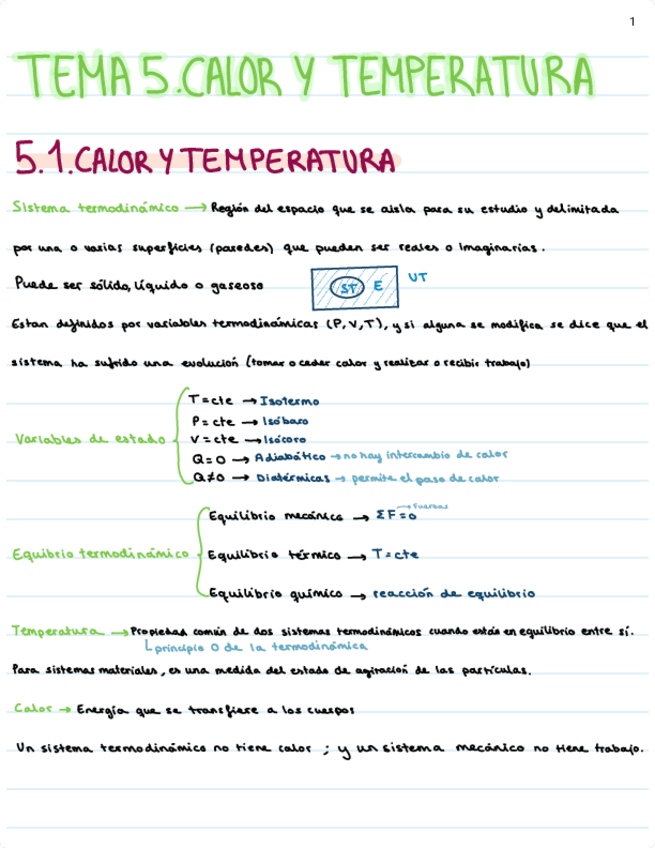 1
TEMA 5.CALOR Y TEMPERATURA
5.1.CALOR Y TEMPERATURA
Sistema termodinámico → Región del espacio que se aisla para su estudio y delimitada
por una o varias superficies (paredes) que pueden ser reales o imaginarias.
Puede ser sólido, líquido o gaseoso
ST E UT
Estan definidos por variables termodinámicas (P, V, T), y si alguna se modifica se dice que el
sistema ha sufrido una evolución (tomar o ceder calor y realizar o recibir trabajo)
Variables de estado
T = cte → Isotermo
P = cte → Isóbaro
V = cte → Isócoro
Q = 0 → Adiabático → no hay intercambio de calor
Q ≠ 0 → Diatérmicas → permite el paso de calor
Equibrio termodinámico
Equilibrio mecánico → ΣF = 0 → Fuerzas
Equilibrio térmico → T = cte
Equilibrio químico → reacción de equilibrio
Temperatura → Propiedad común de dos sistemas termodinámicos cuando están en equilibrio entre sí.
principio 0 de la termodinámica
Para sistemas materiales, es una medida del estado de agitación de las partículas.
Calor → Energía que se transfiere a los cuerpos
Un sistema termodinámico no tiene calor ; y un sistema mecánico no tiene trabajo.